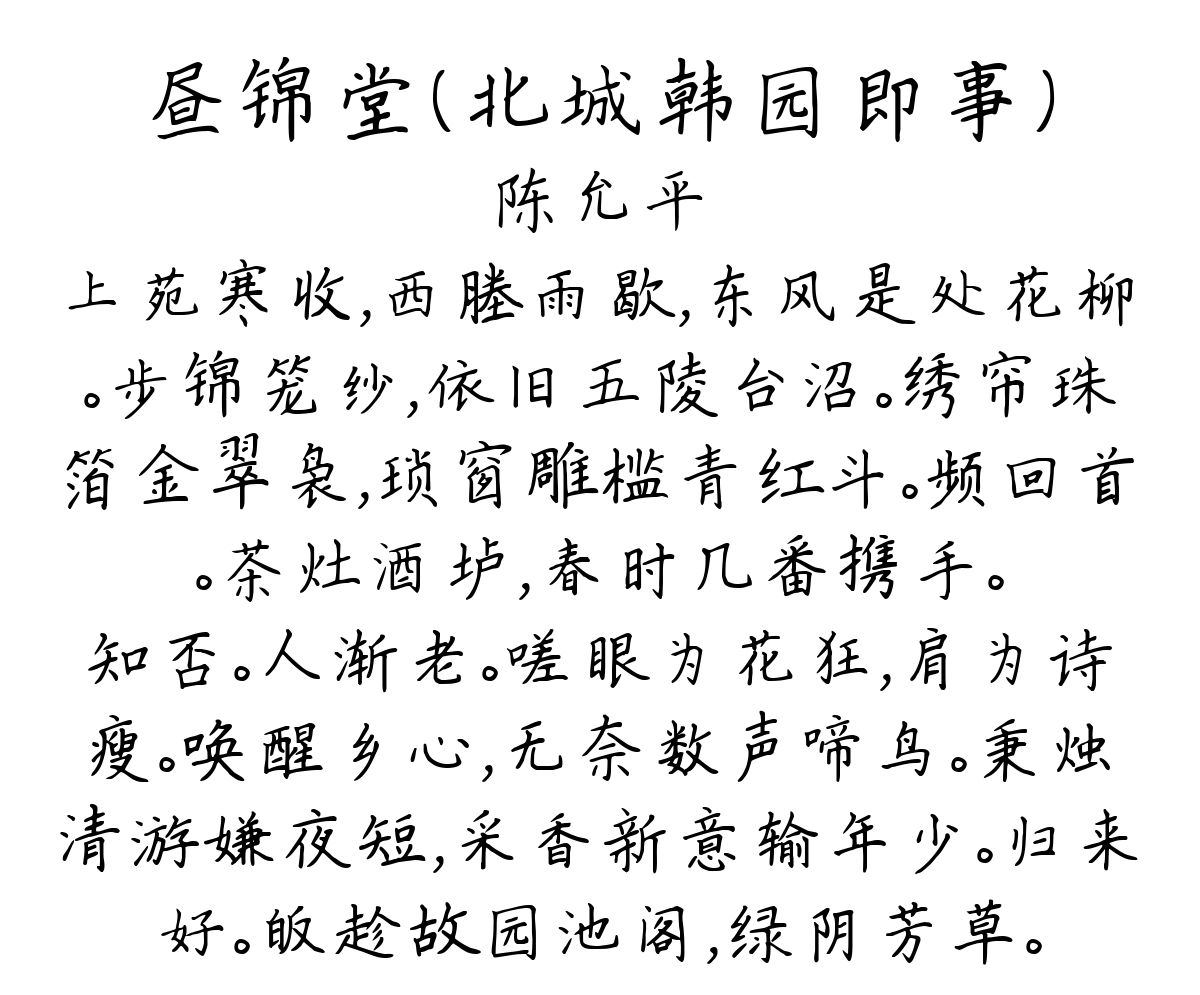 昼锦堂(北城韩园即事)
陈允平
上苑寒收,西塍雨歇,东风是处花柳
。步锦笼纱,依旧五陵台沼。绣帘珠
箔金翠袅,琐窗雕槛青红斗。频回首
。茶灶酒垆,春时几番携手。
知否。人渐老。嗟眼为花狂,肩为诗
瘦。唤醒乡心,无奈数声啼鸟。秉烛
清游嫌夜短,采香新意输年少。归来
好。皈趁故园池阁,绿阴芳草。